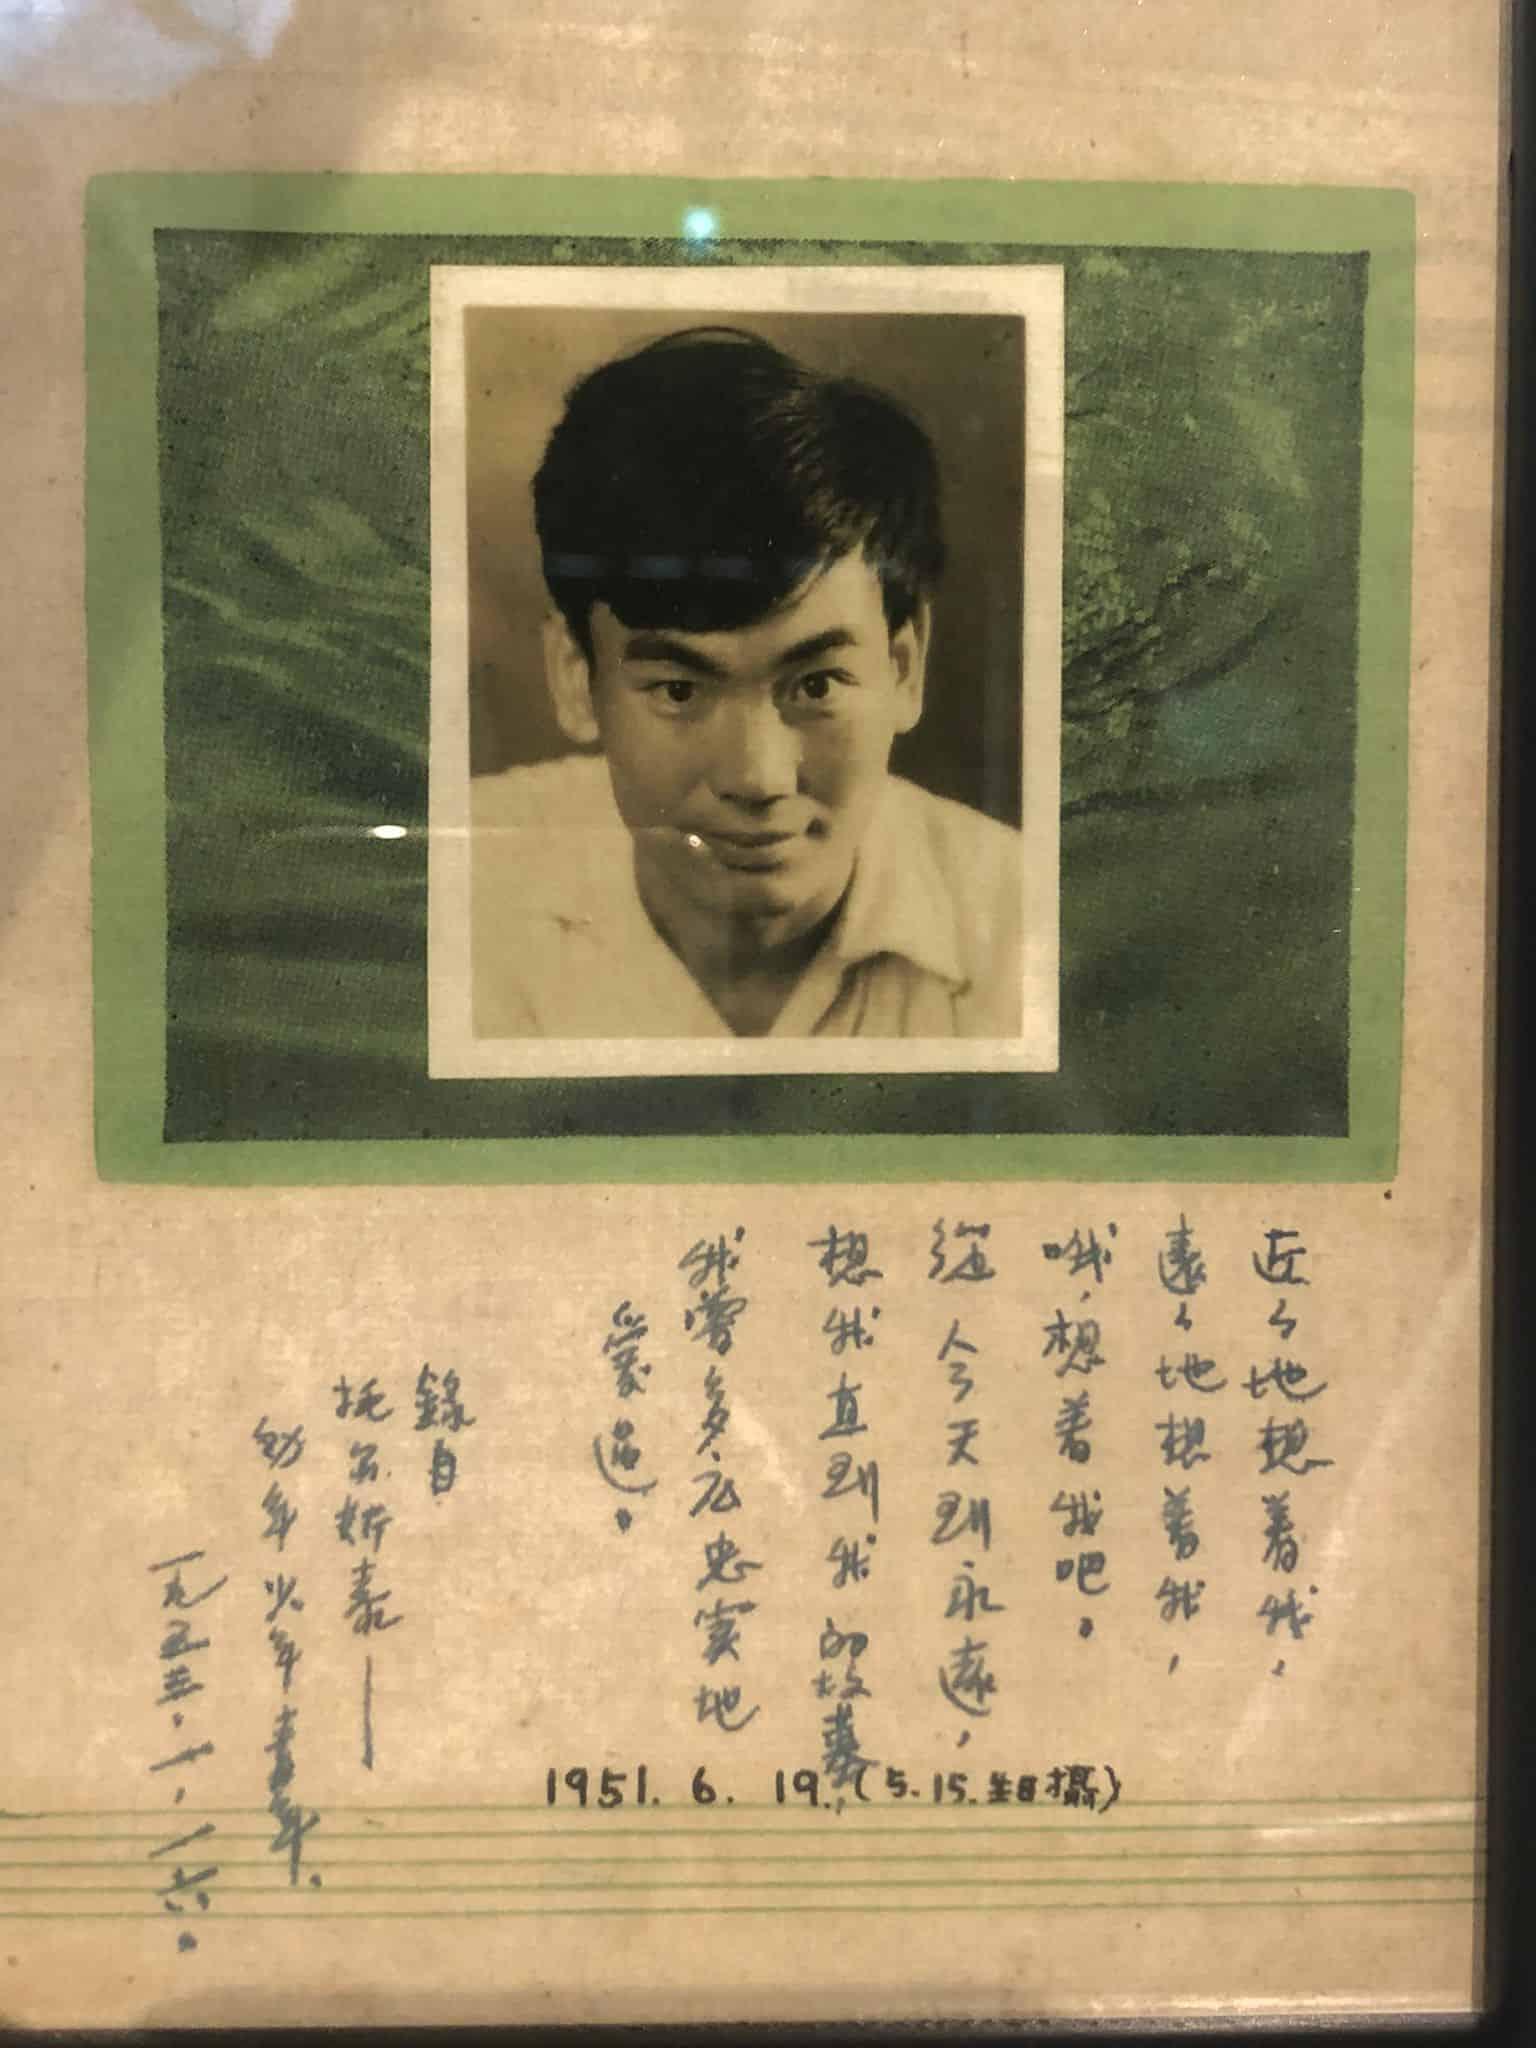 近々地想着我，
遠々地想着我，
哦，想着我吧。
從今天到永遠，
想我直到我的墳墓，
我曾多麽忠實地
愛過。
錄自
托尔斯泰——
幼年少年青年．
一九五三．一．一六。
1951. 6. 19.（5.15.生日攝）